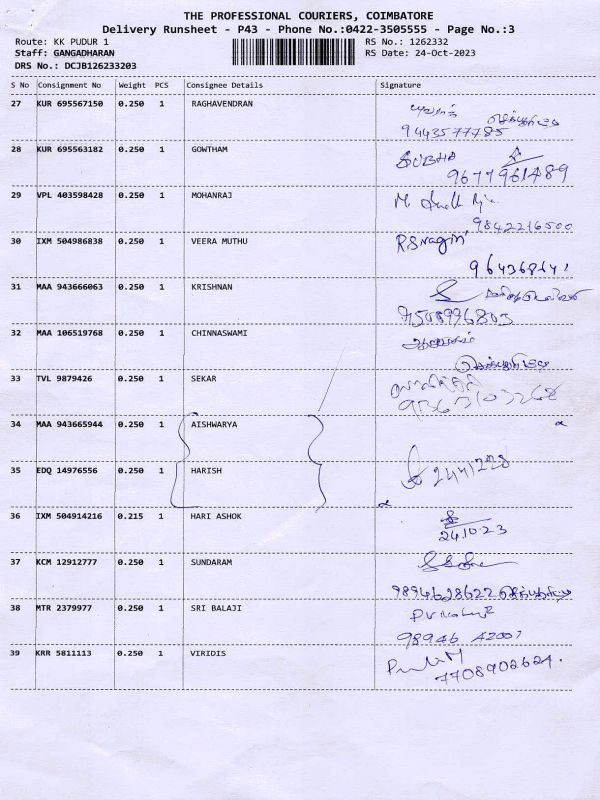 THE PROFESSIONAL COURIERS, COIMBATORE
Delivery Runsheet - P43 - Phone No.:0422-3505555 - Page No.:3
Route: KK PUDUR 1 RS No.: 1262332
Staff: GANGADHARAN RS Date: 24-Oct-2023
DRS No.: DCJB126233203
S No Consignment No Weight PCS Consignee Details Signature
27 KUR 695567150 0.250 1 RAGHAVENDRAN
9443577785
28 KUR 695563182 0.250 1 GOWTHAM SUBHA
9677961489
29 VPL 403598428 0.250 1 MOHANRAJ
9842216500
30 IXM 504986838 0.250 1 VEERA MUTHU
31 MAA 943666063 0.250 1 KRISHNAN
32 MAA 106519768 0.250 1 CHINNASWAMI
33 TVL 9879426 0.250 1 SEKAR
34 MAA 943665944 0.250 1 AISHWARYA
35 EDQ 14976556 0.250 1 HARISH
36 IXM 504914216 0.215 1 HARI ASHOK
24.10.23
37 KCM 12912777 0.250 1 SUNDARAM
9894628622
38 MTR 2379977 0.250 1 SRI BALAJI
98946 42001
39 KRR 5811113 0.250 1 VIRIDIS
7708902624.